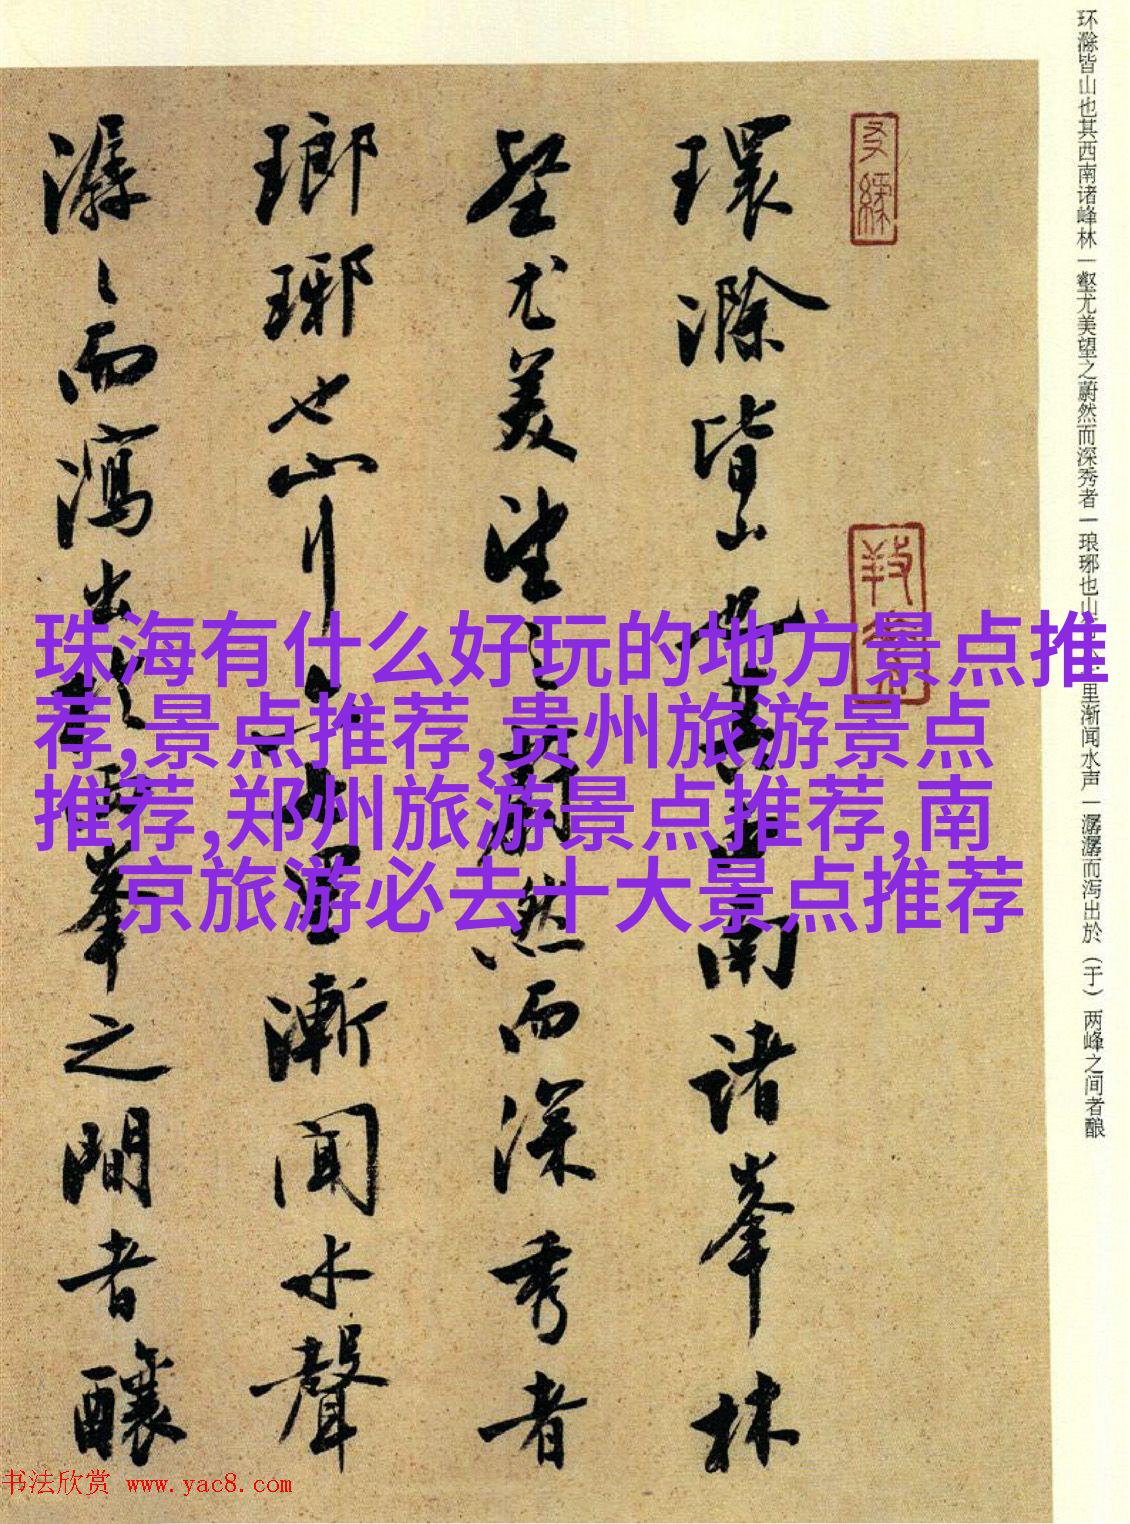 环滁皆山也其西南诸峰林一壑尤美望之蔚然而深秀者一琅琊也山行六七里渐闻水声一潺潺而泻出於（于）两峰之间者酿
環滁皆山也其西南諸峯林
壑尤美望之蔚然而深秀者
瑯琊也山行六七里漸聞水聲
潺々而瀉出於兩峯之間者釀
珠海有什么好玩的地方景点推
荐,景点推荐,贵州旅游景点
推荐,郑州旅游景点推荐,南
京旅游必去十大景点推荐
书法欣赏 www.yac8.com